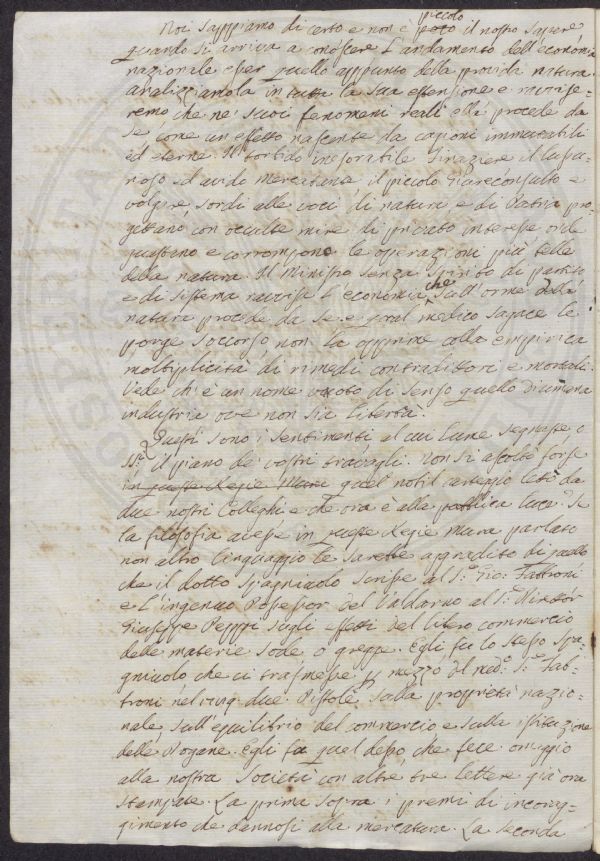 piccolo
Noi sappiamo di certo e non è poco il nostro sapere
quando si arriva a conoscere l'andamento dell'economia
nazionale esser quello appunto della provida natura.
analizziamola in tutta la sua estensione e ravvise=
remo che ne' suoi fenomeni reali ella procede da
se come un effetto nascente da cagioni immutabili
ed eterne. Il torbido inesorabile Finaziere il lusin=
ed avido mercatante il piccolo Giureconsulto e
volgare sordi alle voci di natura e di Patria pro=
gettano con occulte mire di privato interesse onde
guastano e corrompono le operazioni più belle
della natura. Il Ministro senza spirito di partito
e di sistema ravvisa l'economia, che sull'orme della
natura procede da se, e qual medico sagace le
porge soccorso non la opprime colla empirica
moltiplicità di rimedi contradittorj e mortali.
Vede ch'è un nome vuoto di senso quello d'umana
industria ove non sia libertà.
Questi sono i sentimenti al cui lume segnaste o
SS.ri il piano de' vostri travagli. Non si ascoltò forse
in queste Regie Mura quel nobil carteggio letto da
due nostri Colleghi e che ora è alla pubblica luce. Se
la filosofia avesse in queste Regie Mura parlato
non altro linguaggio le sarebbe aggradito di quello
che il dotto Spagniuolo scrisse al S.r Gio: Fabbroni
e l'ingenuo Possessor del Valdarno al S.r
Giuseppe sugli effetti del libero commercio
delle materie sode o gregge. Egli fu lo stesso Spa=
gniuolo che ci trasmesse p mezzo del med.o S.r Fab=
broni due Pistole sulla proprietà nazio=
nale, sull'equilibrio del commercio e sulla istituzione
delle Dogane. Egli fu quel desso che fece omaggio
alla nostra Società con altre tre lettere già ora
stampate. La prima sopra i premi di incorag=
gimento che dannosi alla mercatura. La seconda